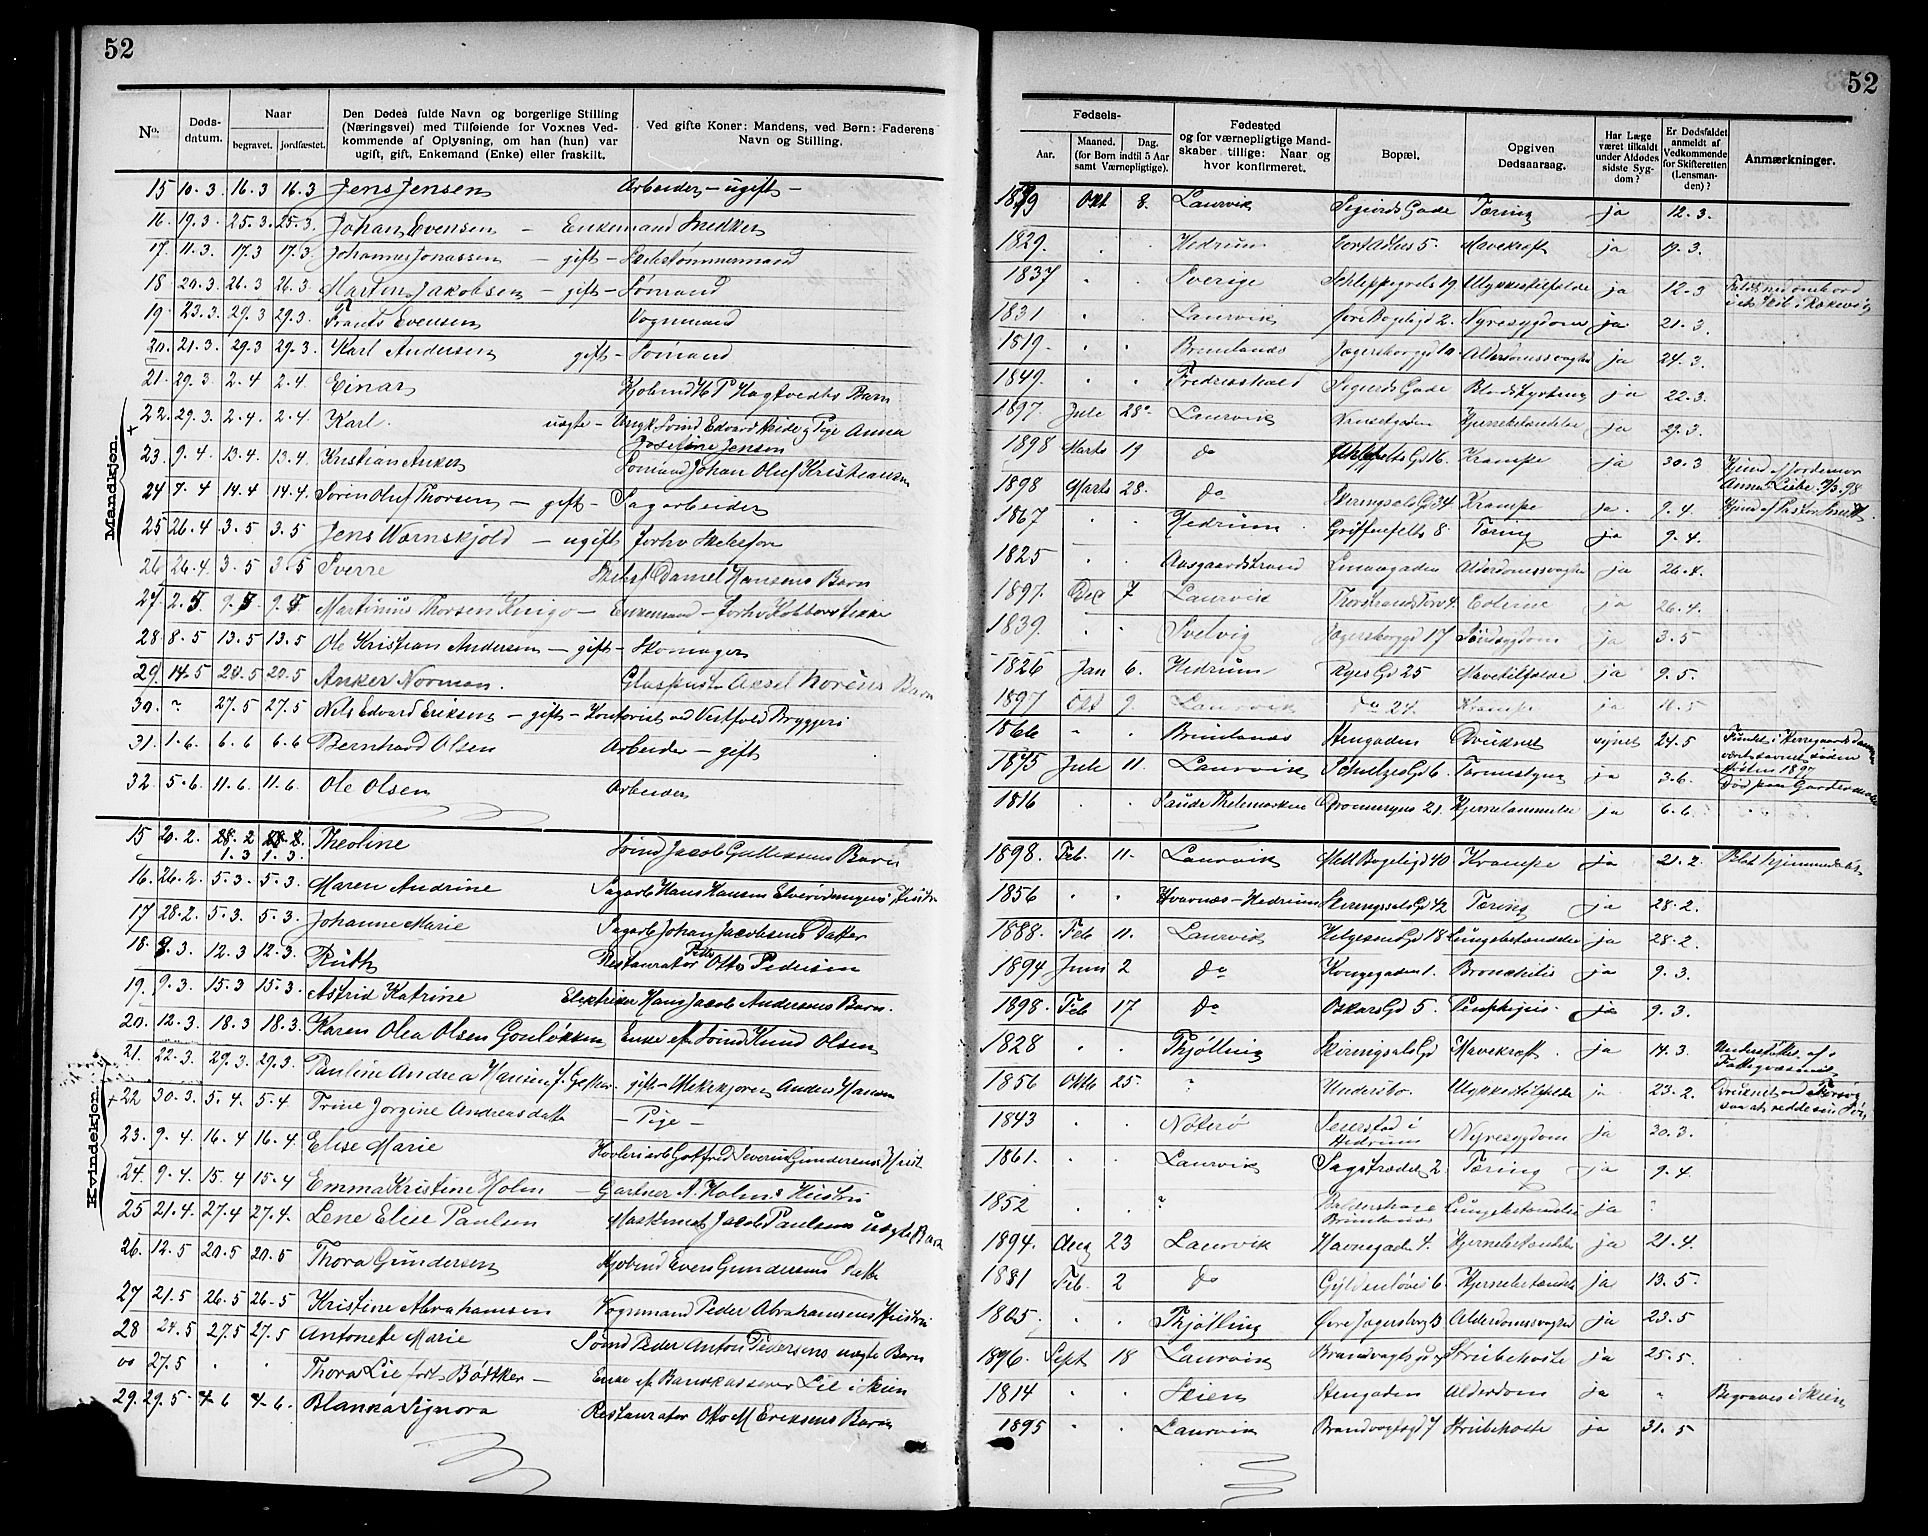 52
52
No.
Døds-
datum.
Naar
begravet.
jordfæstet.
Den Dødes fulde Navn og borgerlige Stilling
(Næringsvei) med Tilføiende for Voxnes Ved-
kommende af Oplysning, om han (hun) var
ugift, gift, Enkemand (Enke) eller fraskilt.
Ved gifte Koner: Mandens, ved Børn: Faderens
Navn og Stilling.
Fødsels-
Aar.
Maaned.
Dag.
(for Børn indtil 5 Aar
samt Værnepligtige).
Fødested
og for værnepligtige Mand-
skaber tillige: Naar og
hvor konfirmeret.
Bopæl.
Opgiven
Dødsaarsag.
Har Læge
været tilkaldt
under Afdødes
sidste Syg-
dom?
Er Dødsfaldet
anmeldt af
Vedkommende
for Skifteretten
(Lensman-
den)?
Anmærkninger.
Mandkjøn.
15 10.3 16.3 16.3 Jens Jensen Arbeider - ugift - 1879 Okt 8. Laurvik Sigurds Gade Tæring ja 12.3.
16. 19.3. 25.3. 25.3. Johan Evensen - Enkemand Snedker 1829. Hedrum 5. Mavekræft ja 19.3.
17. 11.3. 17.3 17.3 Johannes Jonassen - gift - Skibstømmermand 1837 Sverige Schleppegrels 19 Ulykkestilfælde ja 12.3
18 20.3. 26.3 26.3. Martin Jakobsen - gift - Sømand 1831 Laurvik 2. Nyresygdom ja 21.3.
19 23.3. 29.3 29.3. Frants Evensen Vognmand 1819. Brunlanæs Jegersborggd 10 Alderdomssvaghed ja 24.3.
20. 21.3. 29.3 29.3. Karl Andersen gift - Sømand 1849. Fredrikshald Sigurds Gade Blodstyrtning ja 22.3.
21. 29.3. 2.4 2.4. Einar Kjøbmd H P Hagtvedts Barn 1897. Juli 28. Laurvik Hjernebetændelse ja 29.3.
22. 29.3. 2.4. 2.4. Karl. uægte - Ungk. Sømd Edvard Heide og Pige Anna
Josefine Jensen 1898 Marts 19 do 16. Krampe ja 30.3
23. 9.4. 13.4. 13.4. Kristian Anker Sømand Johan Oluf Kristiansen 1898 Marts 28. do Skiringsals Gd 34 Krampe ja. 9.4.
24 7.4 14.4 14.4. Søren Oluf Thorsen - gift - Sagarbeider 1867 Hedrum Griffenfelts 8 Tæring ja 9.4.
25 26.4 3.5 3.5 Jens Wærnskjold - ugift forhv Skibsfører 1825 Aasgaardstrand Alderdomssvaghed ja 26.4.
26 26.4. 3.5 3.5 Sverre Daniel Hansens Barn 1897. Dec 7 Laurvik 4. ja 26.4.
27. 2.5 9.5. 9.5 Martinus Thorsen Kingo - Enkemand - forhv 1839. Svelvig Jegersborggd 17 ja 3.5
28. 8.5 13.5 13.5. Ole Kristian Andersen - gift - Skomager 1826 Jan 6. Hedrum Ryes Gd 25 Mavetilfælde ja 9.5.
29. 14.5 20.5 20.5 Anker Norman. Axel Noréns Barn 1897 Okt 9. Laurvik do 27. Krampe ja
30. ? 27.5 27.5 Nils Edvard Eriksen - gift - Kontorist ved Vestfold Bryggeri 1866 Brunlanæs Stengaden Druknet synet 24.5
31. 1.6. 6.6 6.6 Bernhard Olsen Arbeider - gift 1875 Juli 11. Laurvik Schultzes Gd 6. ja 3.6.
32. 5.6. 11.6. 11.6. Ole Olsen Arbeider 1816 Saude Thelemarken Dronningens 21. Hjernelammelse ja 6.6.
Kvindekjøn.
15 20.2. 28.2 28.2. Theoline Sømd Jacob Gulliksens Barn 1898. Feb. 11. Laurvik Mell Bøgeligd 40 Krampe ja 21.2. Blot hjemmedøbt
1.3 1.3.
16. 26.2. 5.3. 5.3. Maren Andrine Sagarb Hans Hansen Hustru 1856 Kvarnæs - Hedrum Skiringsals Gd 42 Tæring ja 28.2.
17 28.2. 5.3. 5.3. Johanne Marie Sagarb Johan Jacobsens Datter 1888. Feb 11. Laurvik Helgesens Gd 18 Lungebetændelse ja 28.2.
18. 8.3. 12.3 12.3. Ruth Restauratør Peder Otto Pedersen 1894 Juni 2 do Kongegaden 1. Bronchitis ja 9.3.
19. 9.3. 15.3 15.3. Astrid Katrine Elektriker Hans Jacob Andersens Barn. 1898. Feb 17 do Oskars Gd 5. Pemphigus. ja 9.3.
20. 12.3. 18.3 18.3. Karen Olea Olsen Gonløkken Enke ef Sømd Knud Olsen 1828 Thjølling Skiringsals Gd Mavekræft ja 14.3. Understøttes af
Fattigvæsenet
21. 22.3. 29.3. 29.3. Pauline Andrea Hansen gift - Melkekjører Anders Hansen 1856 Oktb 25. Undersbo. Ulykkestilfælde ja 23.2. Druknet ved Forsøg
paa at redde sin Søn
22 30.3. 5.4. 5.4. Trine Jorgine Andreasdatter - Pige - 1843 Nøterø Seierstad i
Hedrum Nyresygdom ja 30.3.
23. 9.4. 16.4 16.4. Elise Marie Høvleriarb Gotfred Severin Gundersens Hust 1861. Laurvik Sagstrædet 2. Tæring ja 9.4.
24. 9.4. 15.4 15.4 Emma Kristine Holm - Gartner A. Holms Hustru 1852 Brunlanæs Lungebetændelse ja
25 21.4. 27.4 27.4. Lene Elise Paulsen Maskinist Jacob Paulsens uægte Barn 1894. Aug 23 Laurvik Havnegaden 4. Hjernebetændelse ja 21.4.
26. 12.5 20.5 20.5 Thora Gundersen Kjøbmd Evers Gundersens Datter 1881 Feb. 2 do Gyldenløves 6. Hjernebetændelse ja 13.5.
27 21.5 26.5 26.5 Kristine Abrahamsen Vognmand Peder Abrahamsens Hustru 1805. Thjølling Øvre Jegersborg 3 Alderdomssvaghed ja 23.5
28 24.5 27.5 27.5 Antonette Marie Sømd Peder Anton Pedersens uægte Barn 1896. Sept 18 Laurvik Strubehoste ja 25.5.
00 27.5 Thora Lie født Bødtker - Enke ef Bankkasserer Lie i Skien 1814 Skien Stengaden Alderdom ja Begraves i Skien
29. 29.5 4.6 4.6. Blanka Signora Restauratør Otto M Eriksens Barn 1895 Laurvik Brandvagtsgd 7 Strubehoste ja 31.5